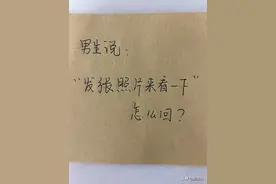 男生说：
“发张照片来看一下”
怎么回？